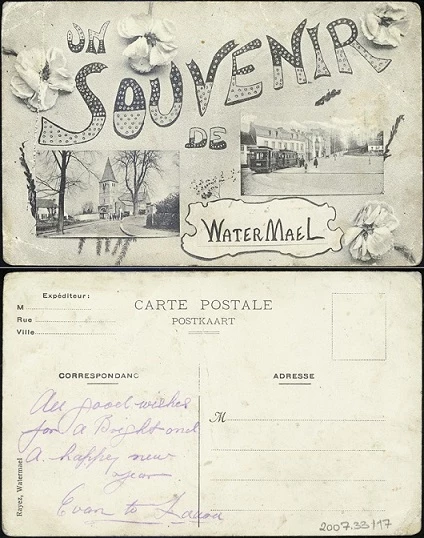 UN
SOUVENIR
DE
WATERMAEL
Expéditeur:
M
Rue
Ville
CARTE POSTALE
POSTKAART
CORRESPONDANC
ADRESSE
All good wishes
for a Bright and
a happy new
year
Evan to Laura
M
Rayez, Watermael
2007.33/17